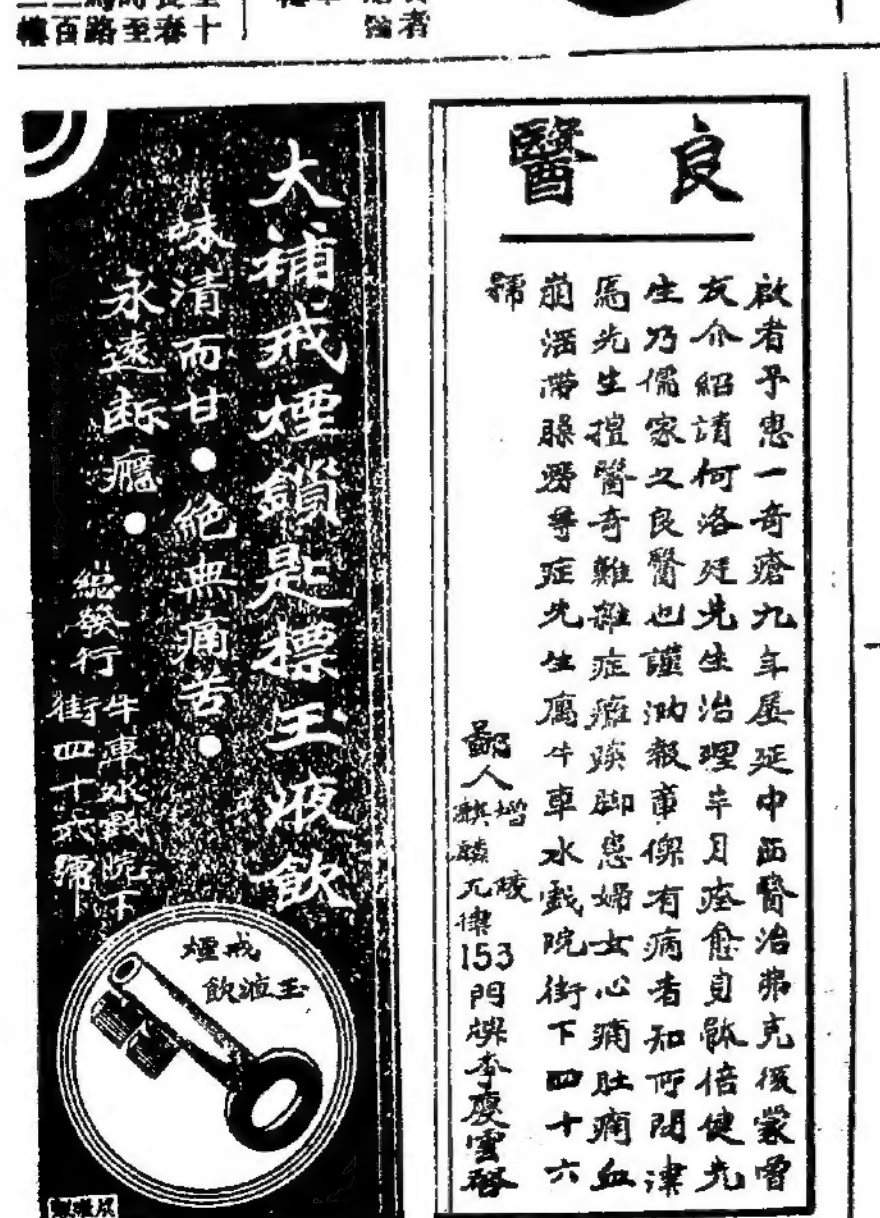 良醫
啟者予患一奇瘡九年屢延中西醫治弗克後蒙曾
友介紹請何洛廷先生治理半月痊愈身體倍健先
生乃儒家之良醫也謹泐報章俾有病者知所問津
馬先生擅醫奇難雜症癰痰脚患婦女心痛肚痛血
崩酒滯臊澇等症先生寓牛車水戲院街下四十六
號
鄙人
153門牌李慶雲啓
大補戒煙鎖匙標玉液飲
味清而甘●絕無痛苦●
永遠斷癮●
總發行
牛車水戲院下
街四十六號
戒煙
玉液飲